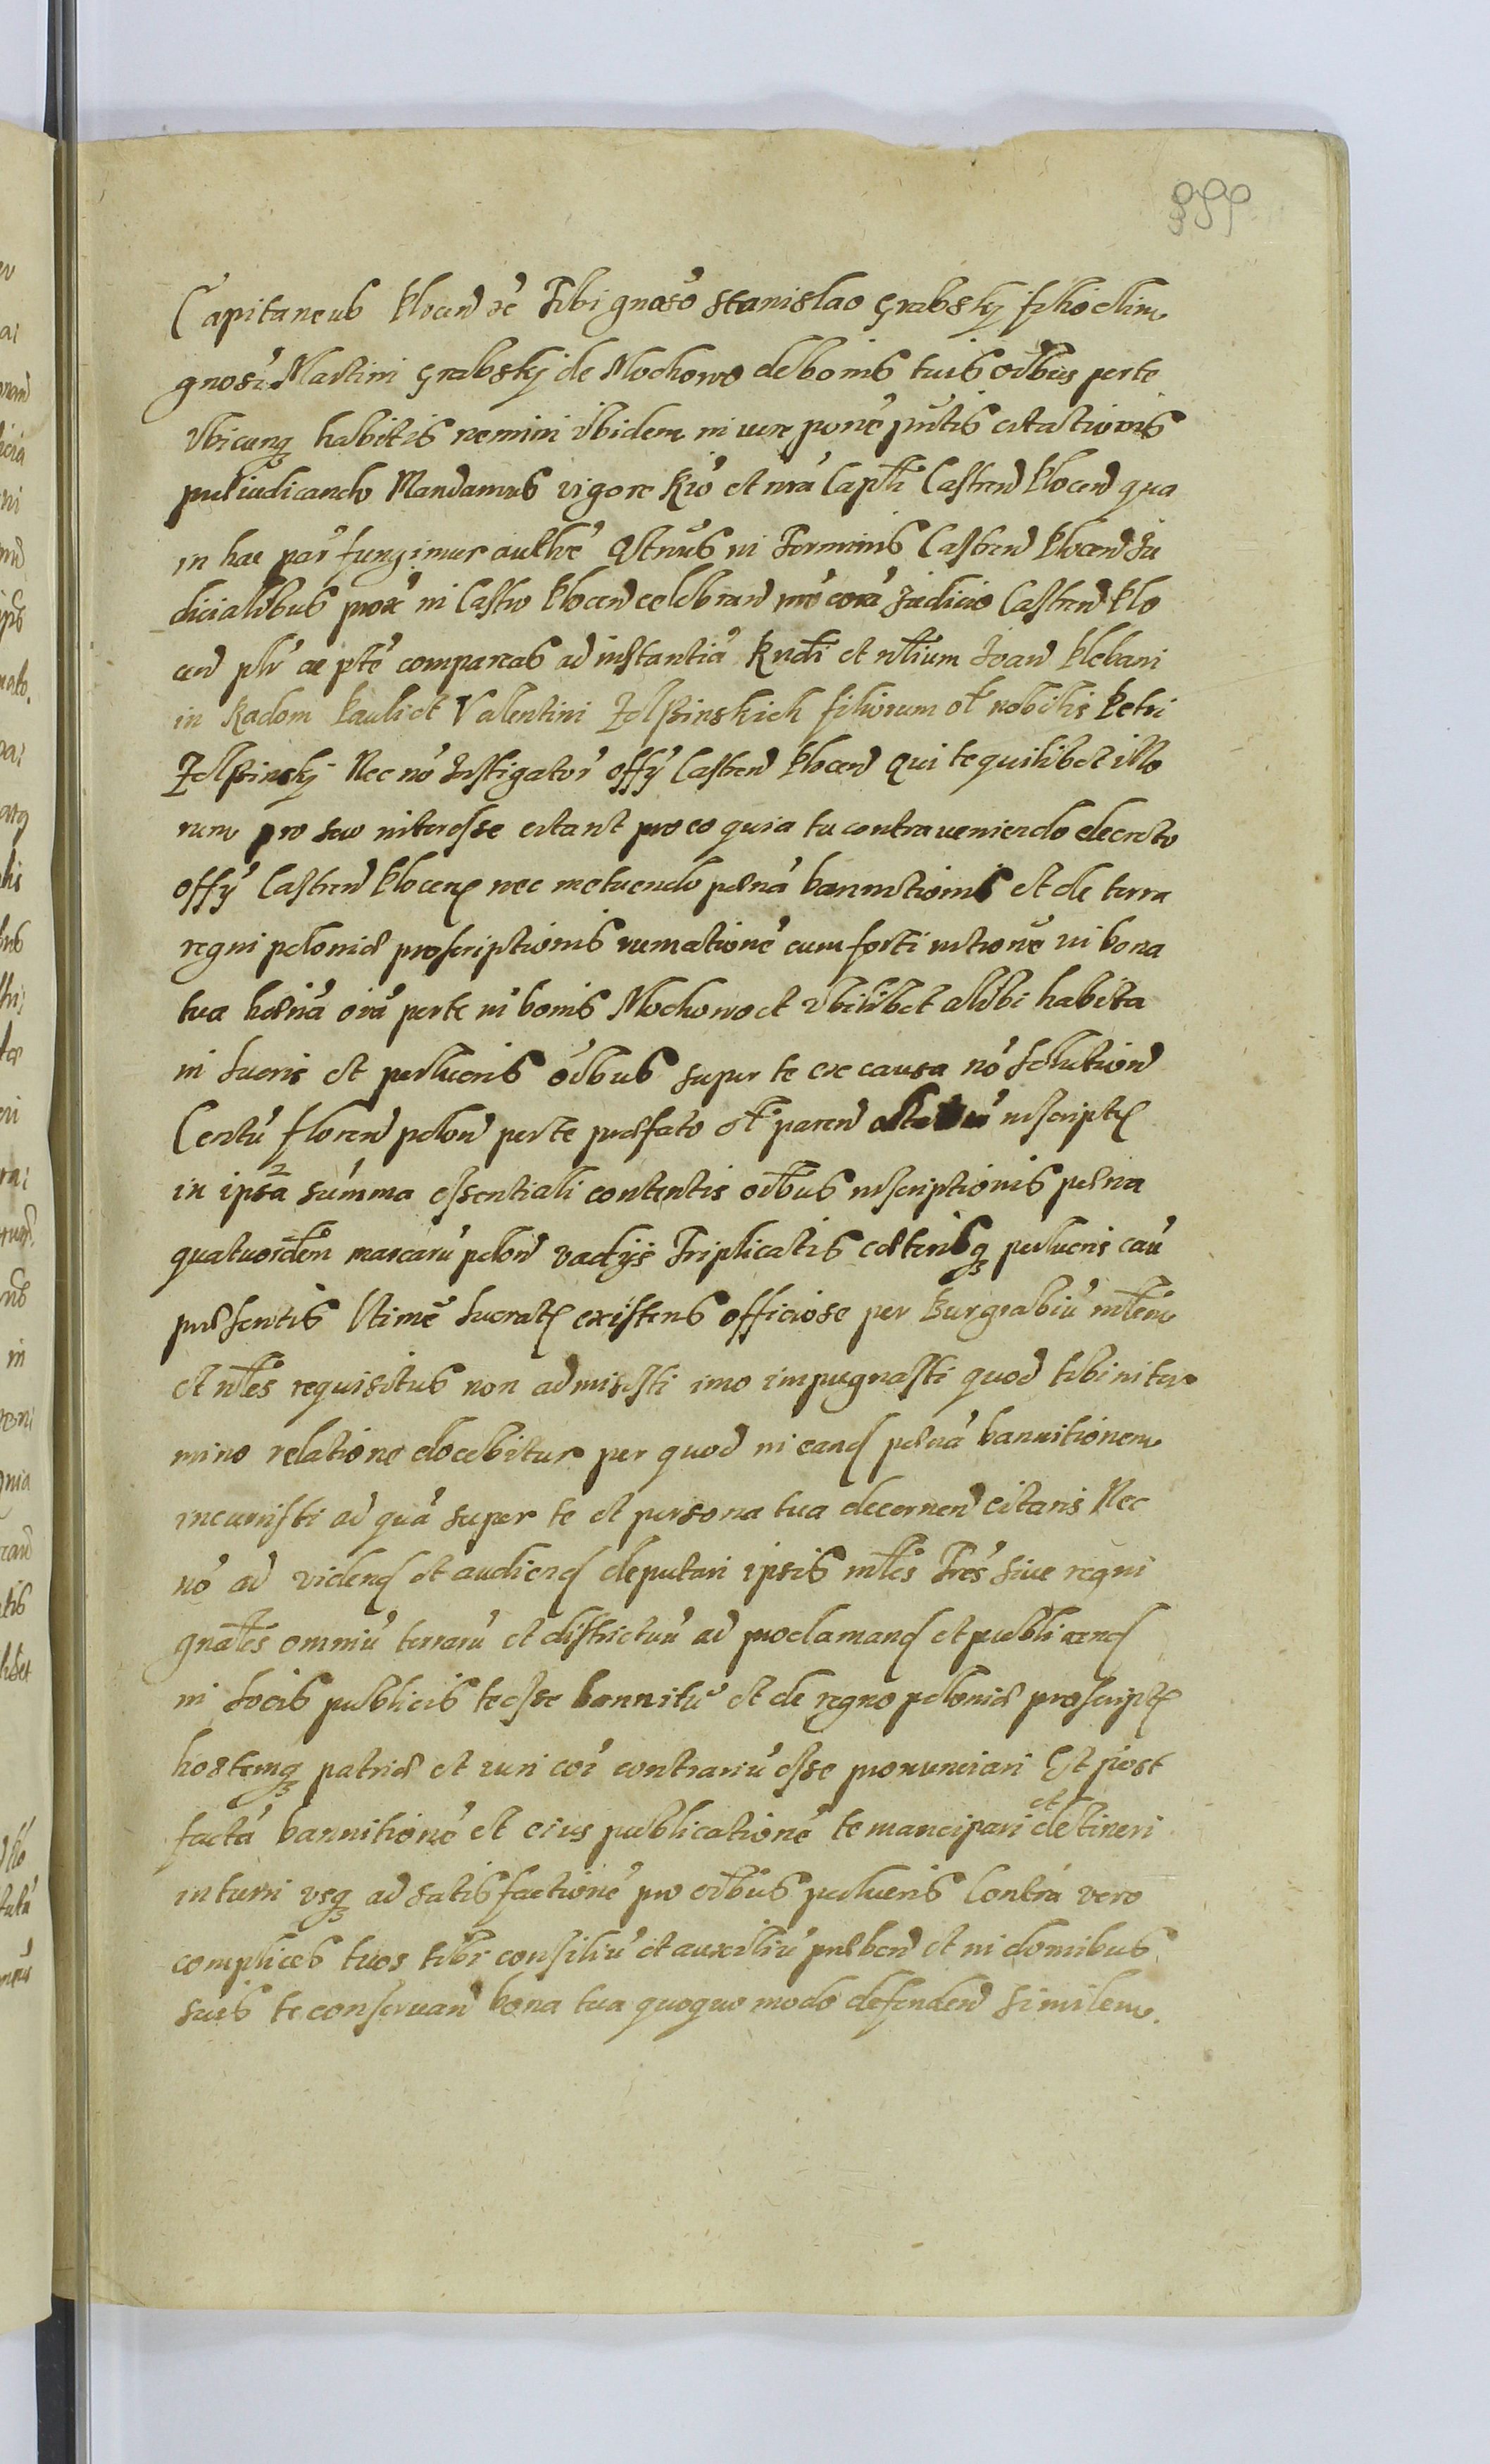 Capitaneus Plocen̄ ec̄ Tibi gnoso Stanislao Grabsky filio olim
gnosi Martini Grabskj de Mochowo de bonis tuis oībus per te
vbicunq̨ habitis nemini ibidem in iure pone pn̄tis citationis
preiudicando Mandamus vigore Rīo et nrā Capt̄li Castren̄ Plocen̄ qua
in hac par fungimur authē qstnus in Terminis Castren̄ Plocen̄ Iu
dicialibus prox in Castro Plocen̄ celebran̄ nrō corā Iudicio Castren̄ Plo
cen̄ plr̄ ac ptē compareas ad instantiā Rndī et nl̄ium Ioan̄ Plebani
in Radom Pauli et Valentini Zelßinskich filiorum ol̄ nobilis Petri
Zelßinskj Nec nō Instigator̄ offȳ Castren̄ Plocen̄ Qui te quilibet illo
rum pro suo interesse citant pro eo quia tu contraveniendo decreto
offȳ Castren̄ Plocen̄ nec metuendo penā bannitionis et de terra
regni polonie proscriptionis rumationē cum forti intronē in bona
tua herīa oīa per te in bonis Mochowo et vbilibet alibi habita
in lucris et perlucris oībus super te ex causa nō solution̄
Centū floren̄ polon̄ per te prefato ol̄ paren̄ inscript
in ipsa summa essentiali contentis oībus inscriptionis pena
quatuordm̄ marcarū polon̄ vadijs Triplicatis ceterisq̨ perlucris cau
presentis ltimē lucrat existens officiose per Burgrabiū ml̄em
et nl̄es requisitus non admisisti imo impugnasti quod tibi in ter
mino relatione docebitur per quod in eand penā bannitionem
incurristi ad quā super te et persona tua decernen̄ citaris Nec
nō ad vidend et audiend deputari ipsis ml̄es Trēs sive regni
gnāles omniū terrarū et districtuū ad proclamand et publicand
in locis publicis te esse bannitū et de regno polonie proscript
hostemq̨ patrie et iuri coī contrariū esse pronunciari Et post
factā bannitionē et eius publicationē te mancipari et detineri
in turri usq̨ ad satisfactionē pro oībus perlucris Contra vero
complices tuos tibi consiliū et auxiliū preben̄ et in domibus
suis te conservan̄ bona tua quoquo modo defenden̄ similem.